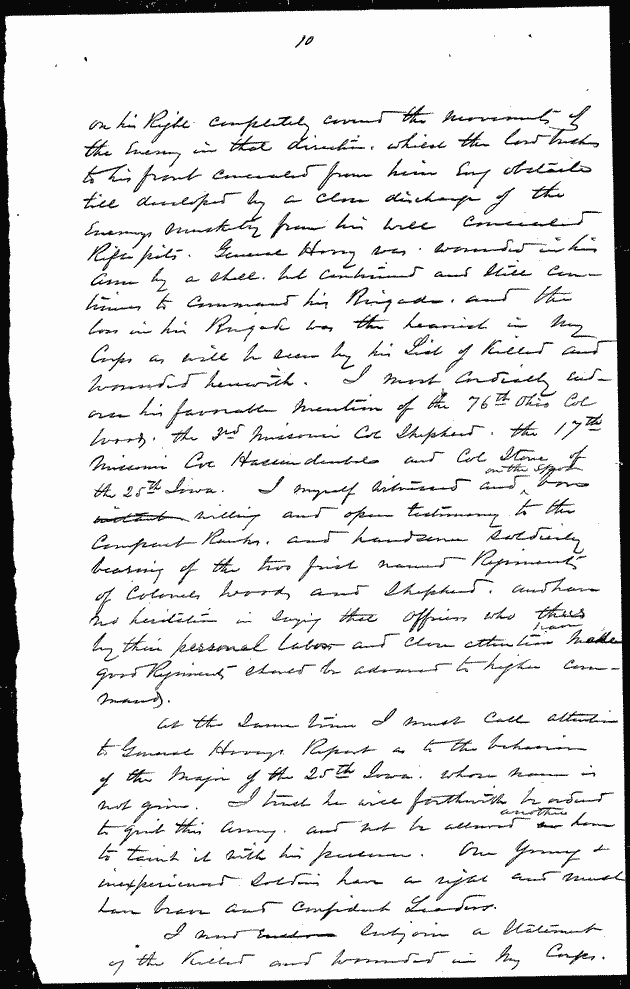 10
on his Right completely covered the movements of
the Enemy in that direction. whilst the low bushes
to his front concealed from him Any obstacles
till developed by a close discharge of the
Enemys musketry from his well concealed
Rifle pits. General Hovey was wounded in his
arm by a shell. but continued and still con-
tinues to command his Brigade. and the
loss in his Brigade was the heaviest in my
Corps as will be seen by his List of Killed and
Wounded herewith. I most cordially end-
orse his favorable mention of the 76th Ohio Col
Woods. the 3rd Missouri Col Shepherd. the 17th
Missouri Col Hassendeubel and Col Stone of
the 25th Iowa. I myself witnessed and on the spot bore
willing and open testimony to the
Compact Ranks. and handsome soldierly
bearing of the two first named Regiments
of Colonels Woods and Shepherd. and have
no hesitation in saying that officers who thus
by their personal labor and close attention have make
good Regiments should be advanced to higher com-
mands.
At the same time I must call attention
to General Hoveys Report as to the behavior
of the Major of the 25th Iowa. whose name is
not given. I trust he will forthwith be ordered
to quit this Army. and not be allowed another hour
to taint it with his presence. Our Young &
inexperienced Soldiers have a right and must
have brave and confident Leaders.
I now subjoin a Statement
of the Killed and Wounded in my Corps.